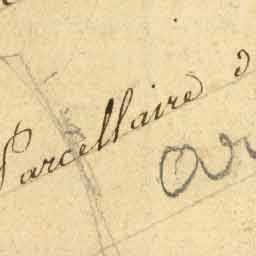 Parcellaire d
Ou